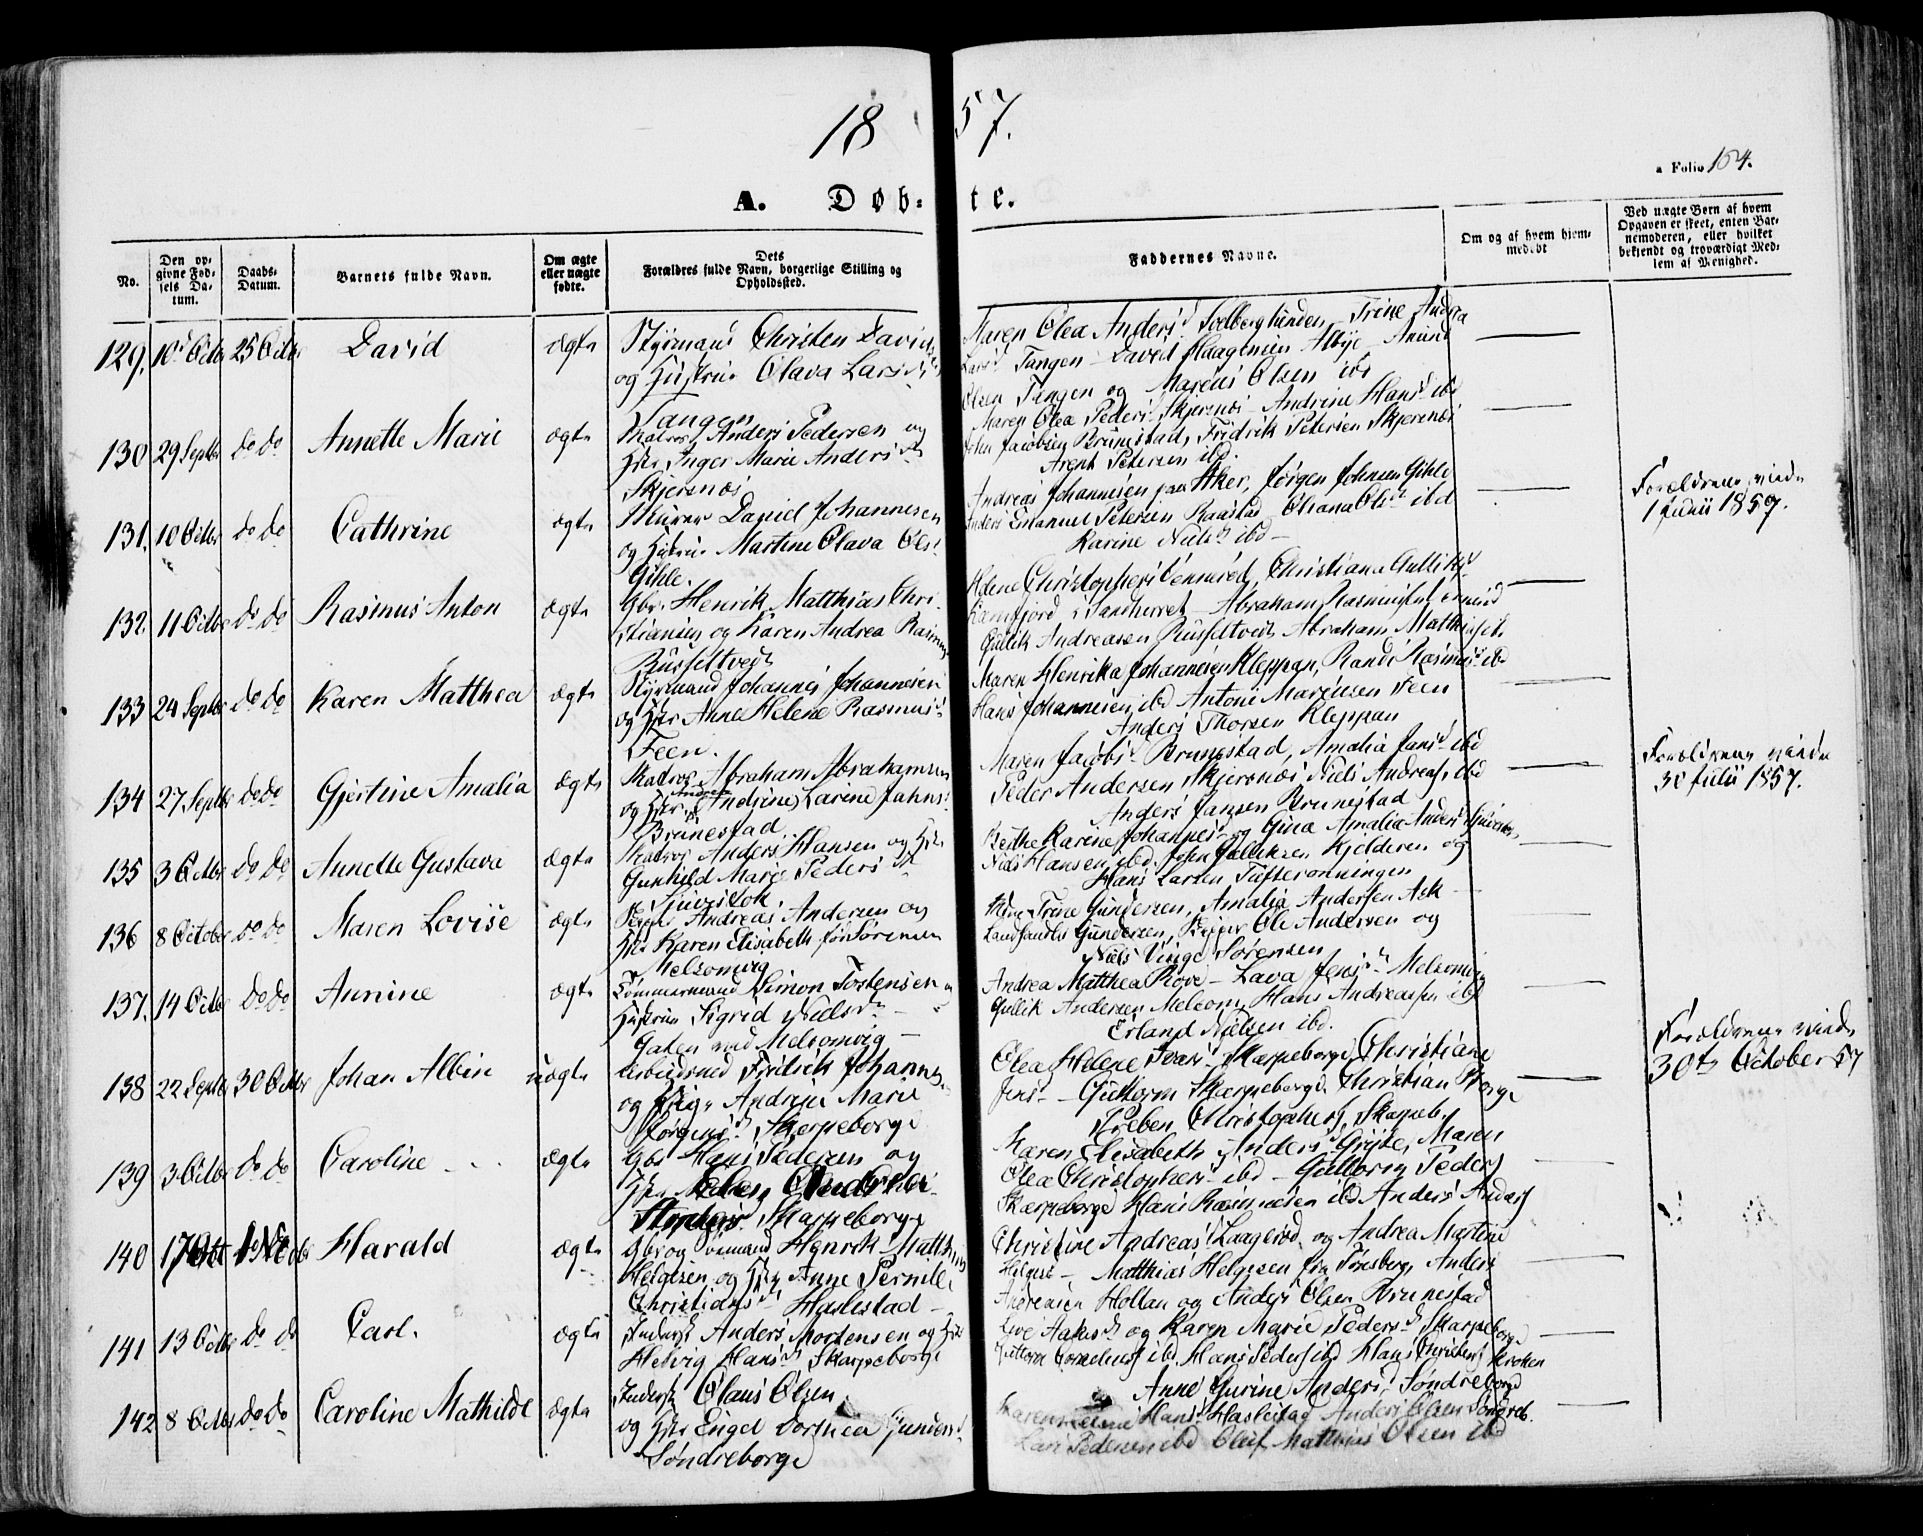 18 57.
a Folio 164.
A. Døb- te.
No.
Den opgivne Fødsels Datum.
Daabs-Datum.
Barnets fulde Navn.
Om ægte eller uægte fødte.
Dets Forældres fulde Navn, borgerlige Stilling og Opholdssted.
Faddernes Navne.
Om og af hvem hjemmedøbt
Ved uægte Børn af hvem Opgaven er skeet, enten Barnemoderen, eller hvilket bekjendt og troværdigt Medlem af Menighed.
129. 10 Octbr 25 Octbr David ægte Styrmand Christen Davids
og Hustru Olava Larsd
Tangen
Maren Olea Andersd Solberg Trine Andrea
Larsd Tangen - David Haagensen Albye - Amund
Olsen Tangen og Marcus Olsen ibd
130 29 Septbr do do Annette Marie ægte Matros Anders Pedersen og
Hstr Inger Marie Andersd
Skjersnæs
Maren Olea Pedersd Skjersnæs - Andrine Hansd ibd
John Jacobsen Brunstad, Fredrik Petersen Skjersnæs
Arent Petersen ibd.
131. 10 Octbr do do Cathrine ægte Murer Daniel Johannesen
og Hustru Martine Olava Ols
Gihle.
Andreas Johannesen paa Aker, Jørgen Johnsen Gihle
Anders Emanuel Petersen Raastad, Oliana Olsd ibd
Karine Nielsd ibd -
Forældrene viede
1 Junii 1857.
132. 11 Octbr do do Rasmus Anton ægte Gbr. Henrik Matthias Chri-
stiansen og Karen Andrea Rasmus
Russeltvedt
Helene Christophersd Christiana Gulliksd
Kamfjord i Sandherred - Abraham Rasmussen
Gullik Andreasen Russeltvedt Abraham Mathias
133 24 Septbr do do Karen Matthea ægte Styrmand Johannes Johannesen
og Hstr Anne Helene Rasmusd
Feen.
Maren Henrika Johannesen Kleppan, Randi Rasmusd ibd
Hans Johannesen ibd Antoni Marensen Feen
Anders Thorsen Kleppan
134 27 Septbr do do Gjertine Amalia ægte Matros Abraham Abrahamsen
og Hstr. Andrea Andrine Larine Jahnsd
Brunestad.
Maren Jacobsd Brunestad, Amalia Jansd ibd
Peder Andersen Skjersnæs Niels Andreas ibd
Anders Jansen Brunestad
Forældrene viede
30 Julii 1857.
135 3 Octbr do do Annette Gustava ægte Matros Anders Hansen og Hstr
Gunhild Marie Pedersd
Sjuestok.
Berthe Karine Johannesd og Gina Amalia Andersd
Niels Hansen ibd. John Gulliksen Kjelderen og
Hans Larsen Tufteronningen
136 8 October do do Maren Lovise ægte Skipper Andreas Andersen og
Hstr Karen Elisabeth født Sørensen
Melsomvig
Trine Gundersen, Amalia Andersen Ask
Gundersen, Skipper Ole Andersen og
Niels Vinge Sørensen
137. 14 Octbr do do Annine ægte Tømmermand Simon Tostensen og
Hustru Sigrid Nielsd -
Gaten ved Melsomvig -
Andrea Matthea Rove - Lava Jensd Melsomvig
Gullik Andersen Melsom, Hans Andreassen ibd
Erland Nielsen ibd.
138 22 Septbr 30 Octbr Johan Albin uægte Arbeidsmd Fredrik Johannes
og Pige Andrine Marie
Jørgensd Skarpeborge
Olea Helene Ivarsd Skarpeborge, Christiane
Jensd - Guttorm Skarpeborge Christian Borge
Preben Christophersd, Skarpeb.
Forældrene viede
30te October 57
139 3 Octbr do do Caroline - ægte Gbr Hans Pedersen og
Hstr
Skarpeborge
Karen Elisabeth Andersd Maren
Olea Christophersd ibd - Guttorm Peders
Skarpeborge Hans Rasmusen ibd Anders Anders
140 17 Harald ægte Gbr og Sømand Henrik Matthias
Helgesen og Hstr Anne Pernille
Christiansd Haslestad -
Christine Andreasd Laagerød og Andrea Martine
Helgesd - Matthias Helgesen fra Tønsberg, Anders
Andersen Holtan og Anders Olsen Brunestad
141 13 Octbr do do Carl. ægte Inderst Anders Mortensen og Hstr
Hedvig Hansd Skarpeborge
Live Aakesd og Karen Marie Pedersd Skarpeborge
Guttorm Corneliusd ibd, Hans Peders ibd Hans Christens Kroken
142 8 Octbr do do Caroline Mathilde ægte Inderst Olaus Olsen
og Hstr Engel Dorthea Gundersd
Søndreborge
Anne Gurine Andersd Søndreborge
Hansd Haslestad Anders Olsen Søndreb.
Lars Pedersen ibd Oluf Matthias Olsen ibd